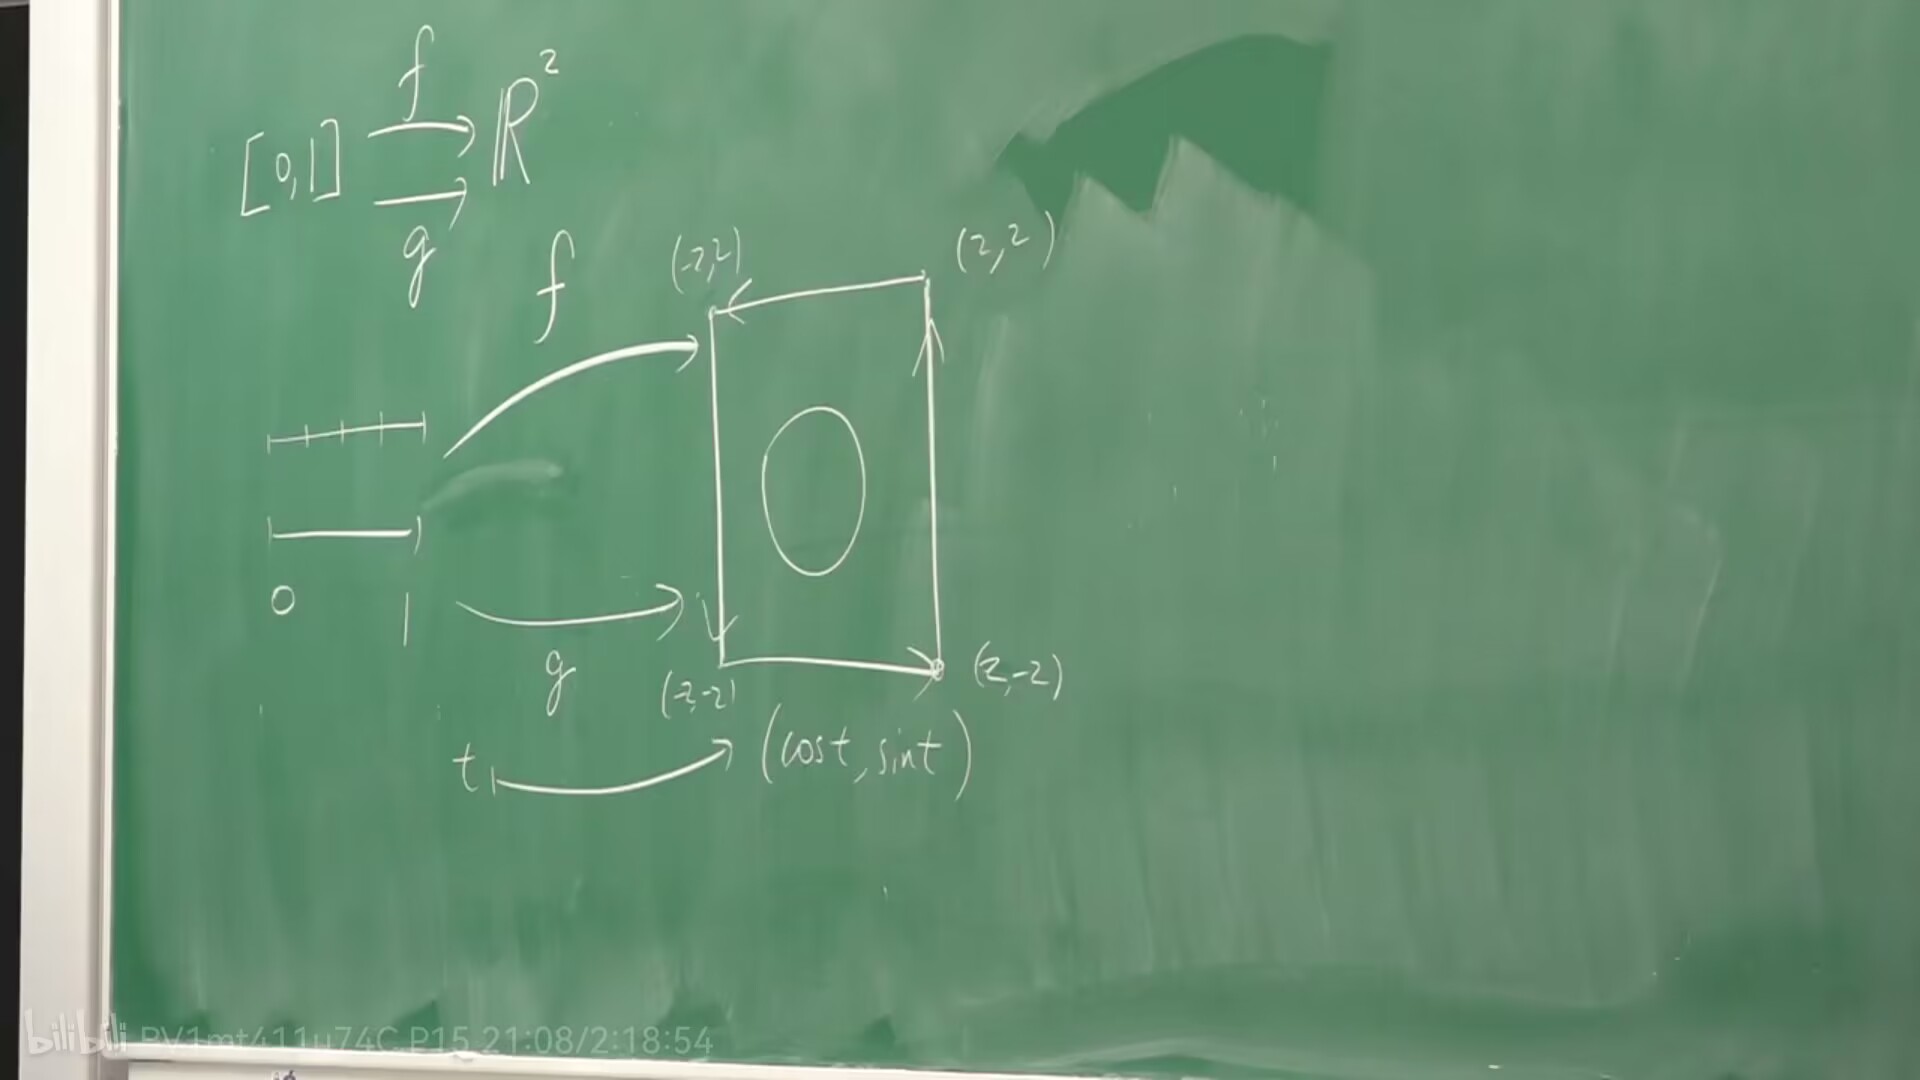 f
[0,1] ℝ²
g
f
(-2,2) (2,2)
0 1
g
(-2,-2) (2,-2)
t ↦ (cost, sint)
bilibili BV1mt411u74C P15 21:08/2:18:54